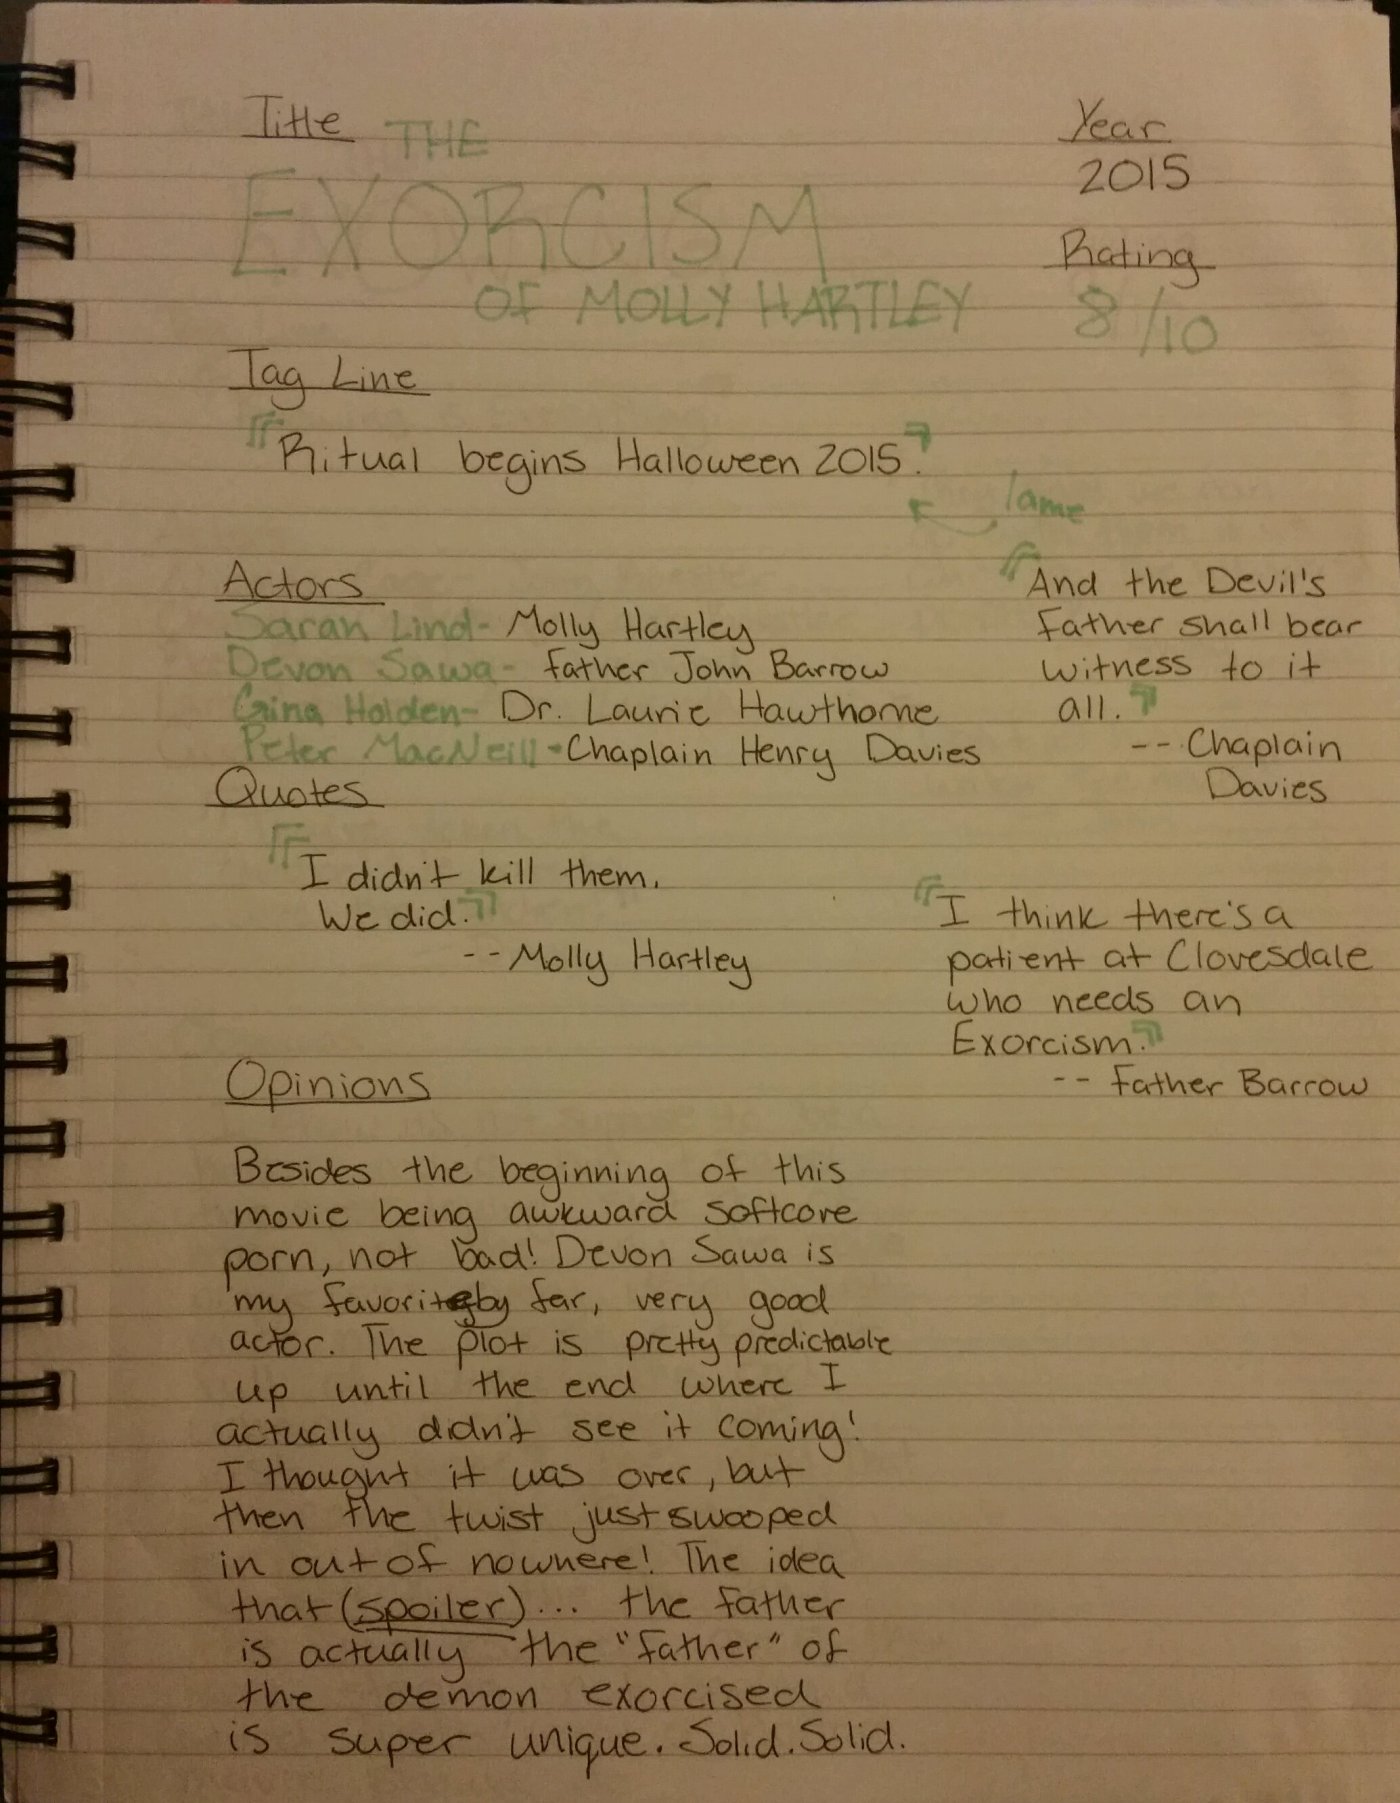 Title
THE
EXORCISM
OF MOLLY HARTLEY
Year
2015
Rating
8/10
Tag Line
"Ritual begins Halloween 2015."
lame
Actors
Sarah Lind- Molly Hartley
Devon Sawa- Father John Barrow
Gina Holden- Dr. Laurie Hawthorne
Peter MacNeill-Chaplain Henry Davies
"And the Devil's
Father shall bear
witness to it
all."
-- Chaplain
Davies
Quotes
"I didn't kill them.
We did."
-- Molly Hartley
"I think there's a
patient at Clovesdale
who needs an
Exorcism."
-- Father Barrow
Opinions
Besides the beginning of this
movie being awkward softcore
porn, not bad! Devon Sawa is
my favorite by far, very good
actor. The plot is pretty predictable
up until the end where I
actually didn't see it coming!
I thought it was over, but
then the twist just swooped
in out of nowhere! The idea
that (spoiler)... the father
is actually the "father" of
the demon exorcised
is super unique. Solid. Solid.